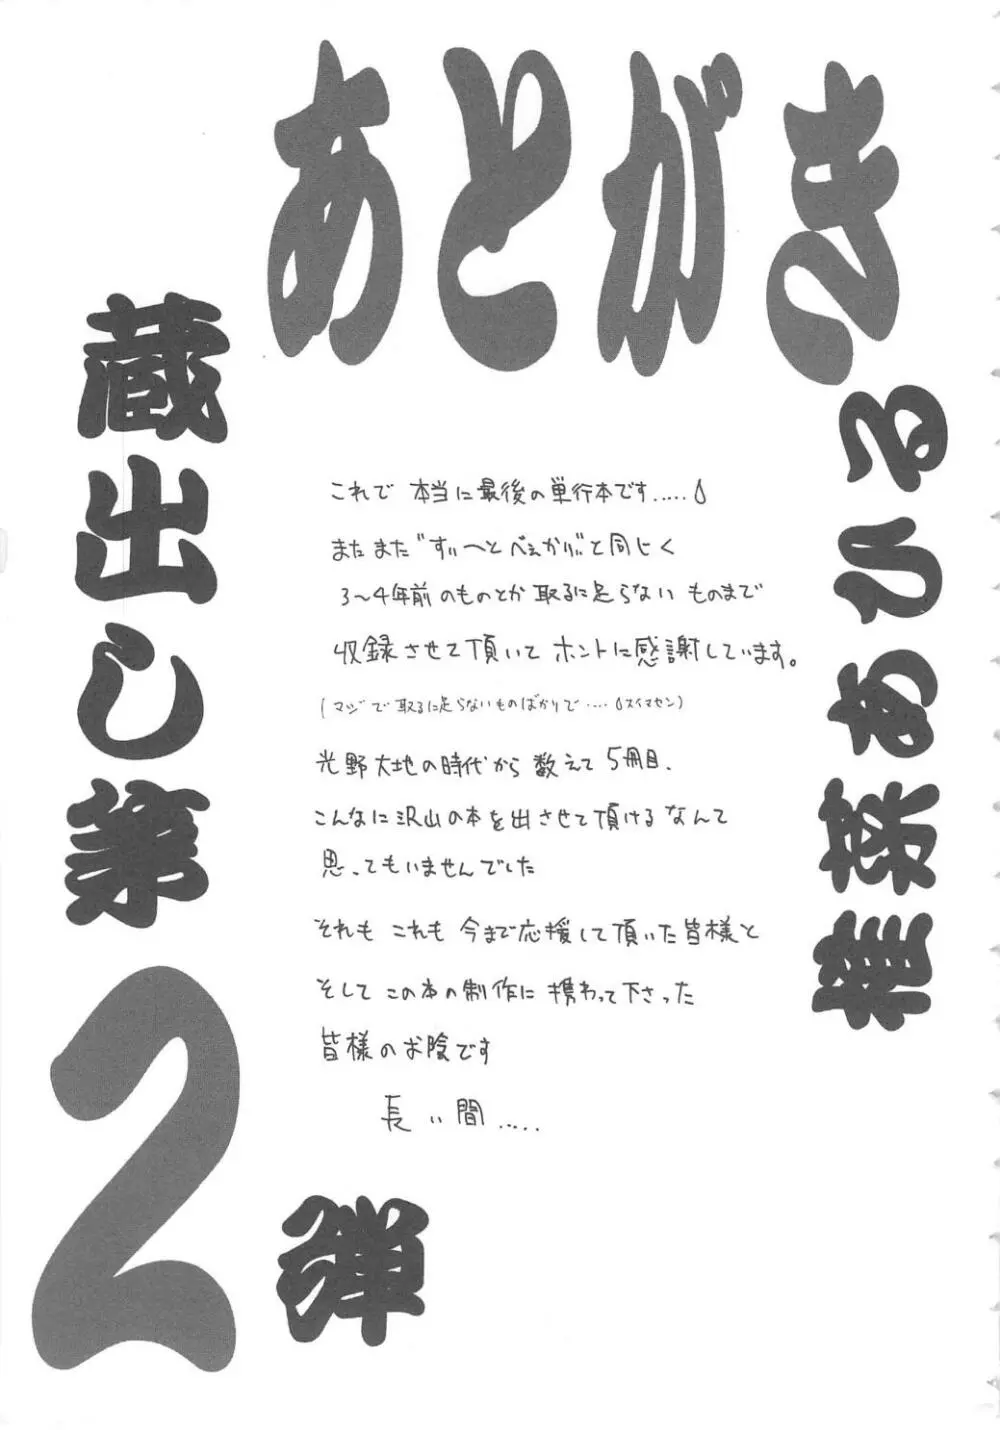 あとがき
蔵出し第2弾
これで本当に最後の単行本です.....
またまた"すいーとべぇかりぃ"と同じく
3〜4年前のものとか取るに足らないものまで
収録させて頂いてホントに感謝しています。
(マジで取るに足らないものばかりで....スイマセン)
光野大地の時代から数えて5冊目、
こんなに沢山の本を出させて頂けるなんて
思ってもいませんでした
それもこれも今まで応援して頂いた皆様と
そしてこの本の制作に携わって下さった
皆様のお陰です
長い間.....
あひる